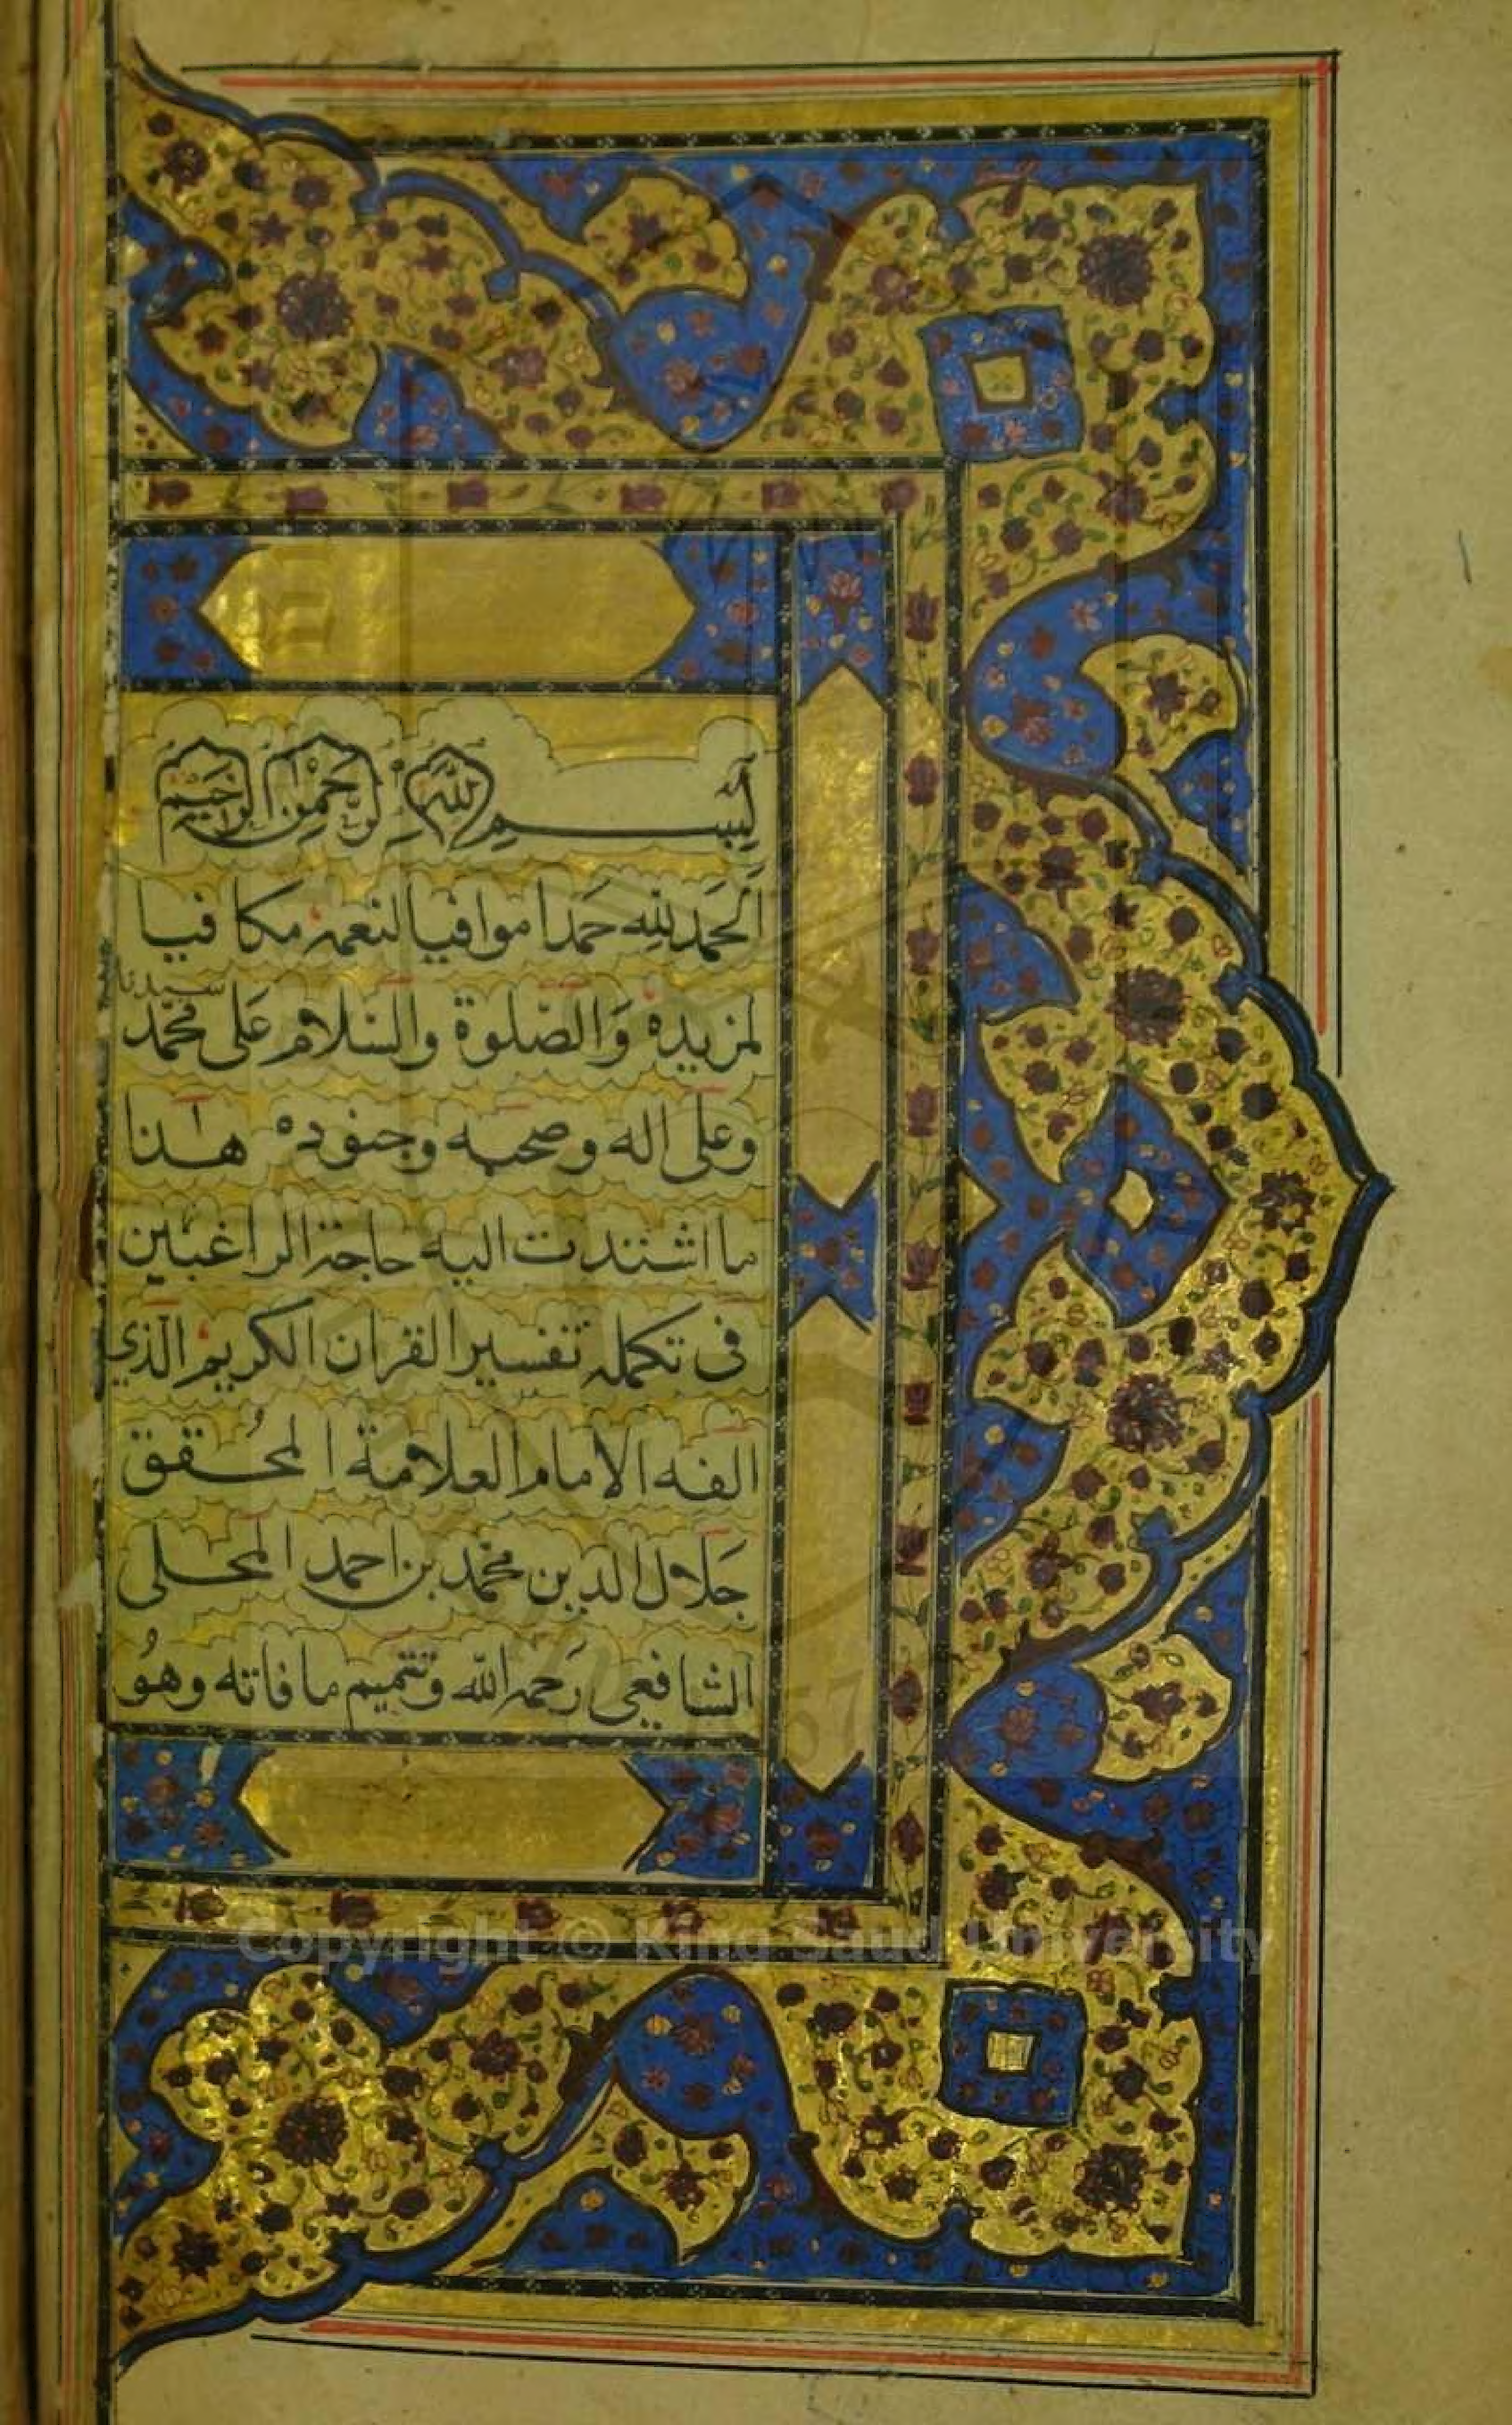 بِسْمِ اللّٰهِ الرَّحْمٰنِ الرَّحِيْمِ
اَلحَمد لله حَمدا موافيا لنعمه مكافيا
لمزيده وَالصّلوة والسّلام عَلى سيدنا محمّد
وعلى اله وصحبه وجنوده هذا
ما اشتدت اليه حاجة الراغبين
فى تكمله تفسير القران الكريم الّذي
الفه الامام العلامة المحُقق
جَلال الدين محمّد بن احمد المحلى
الشافعي رَحمه الله وتتميم ما فاته وهوُ
Copyright © King Saud University
1957